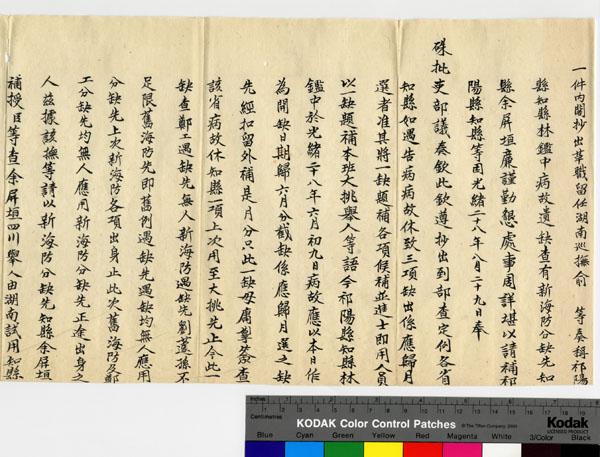 一件內閣抄出革職留任湖南巡撫俞 等奏稱祁陽
縣知縣林鑑中病故遺缺查有新海防分缺先知
縣余屏垣廉謹勤懇處事周詳堪以請補祁
陽縣知縣等因光緒二十八年八月二十九日奉
硃批吏部議奏欽此欽遵抄出到部查定例各省
知縣如遇告病病故休致三項缺出係應歸月
選者准其將一缺題補各項候補並進士即用人員
以一缺題補本班大挑舉人等語今祁陽縣知縣林
鑑中於光緒二十八年六月初九日病故應以本日作
為開缺日期歸六月分截缺係應歸月選之缺
先經扣留外補是月分只此一缺毋庸掣簽查
該省病故休知縣一項上次用至大挑先止今此一
缺查鄭工遇缺先無人新海防遇缺先劉蓋孫不
足限舊海防先即舊例遇缺先遇缺均無人應用
分缺先上次新海防各項出身止此次舊海防及鄭
工分缺先均無人應用新海防分缺先正途出身之
人茲據該撫等請以新海防分缺先知縣余屏垣
補授臣等查余屏垣四川舉人由湖南試用知縣
Inches
Centimetres
KODAK Color Control Patches
© The Tiffen Company, 2000
Kodak
LICENSED PRODUCT
Blue Cyan Green Yellow Red Magenta White 3/Color Black